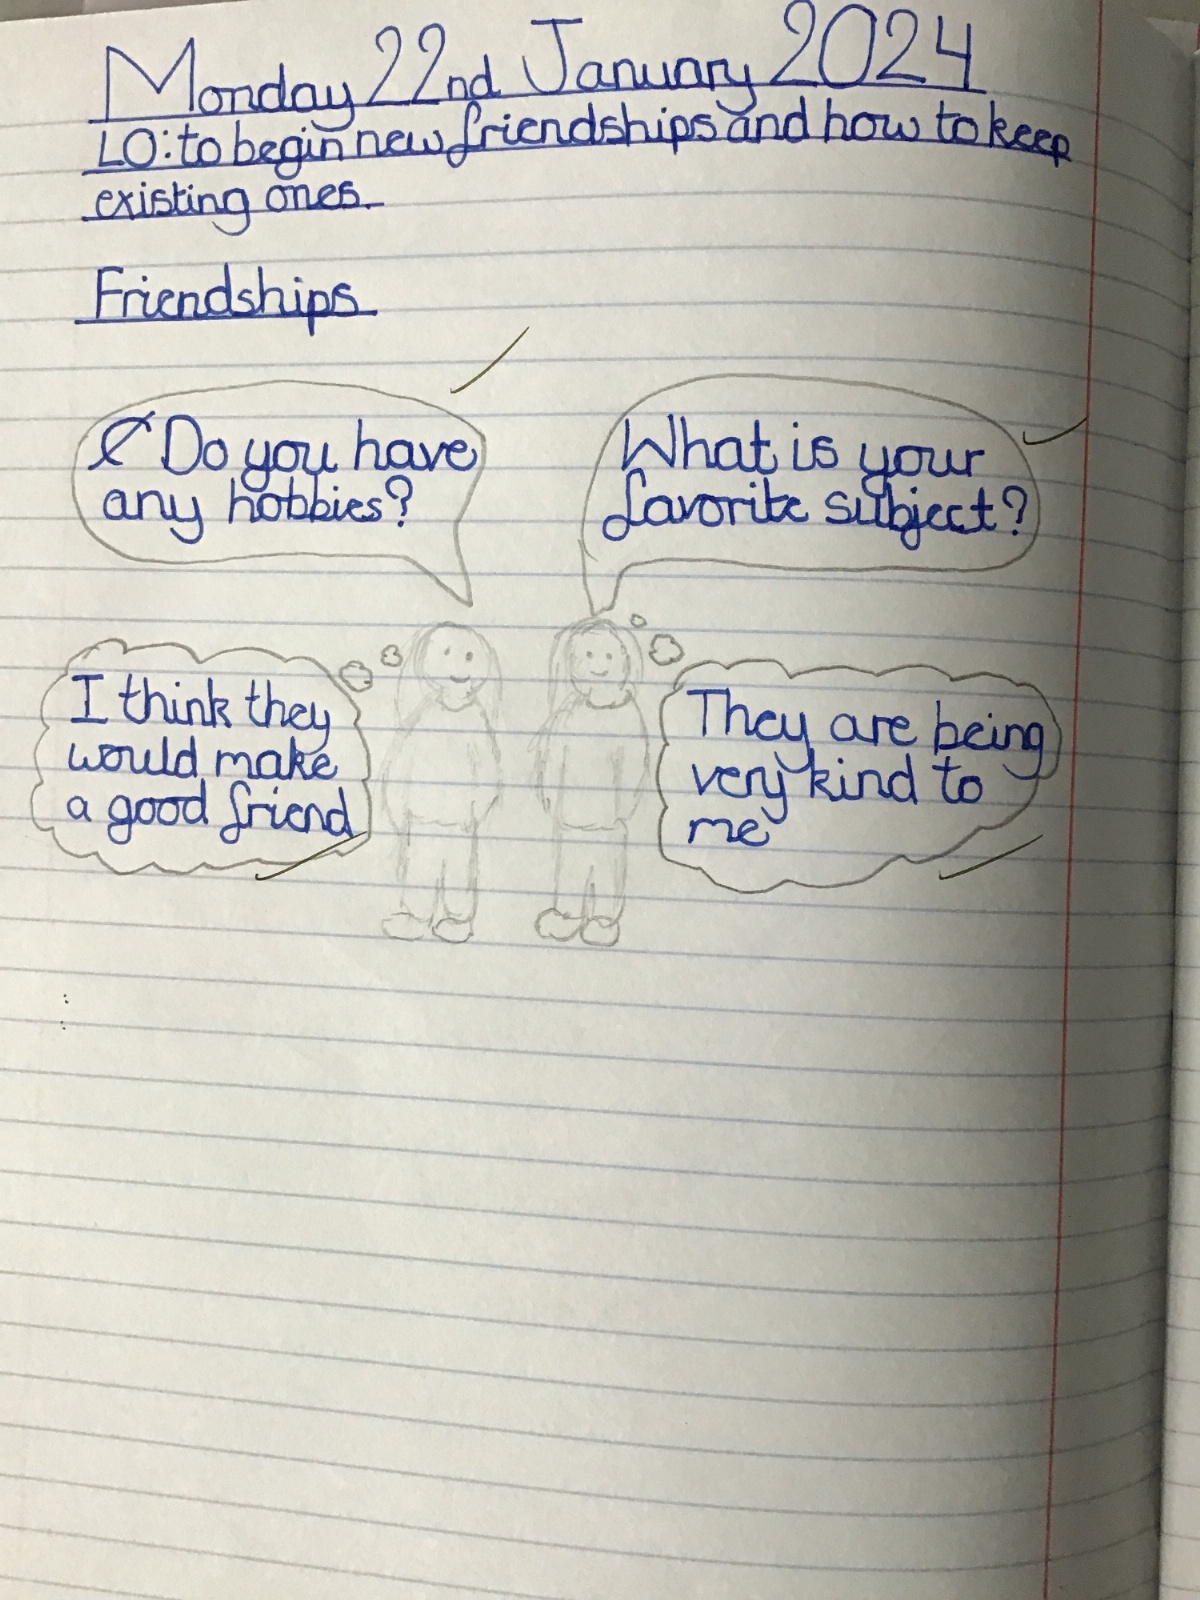 Monday 22nd January 2024
LO: to begin new friendships and how to keep
existing ones.
Friendships
Do you have
any hobbies?
What is your
favorite subject?
I think they
would make
a good friend
They are being
very kind to
me